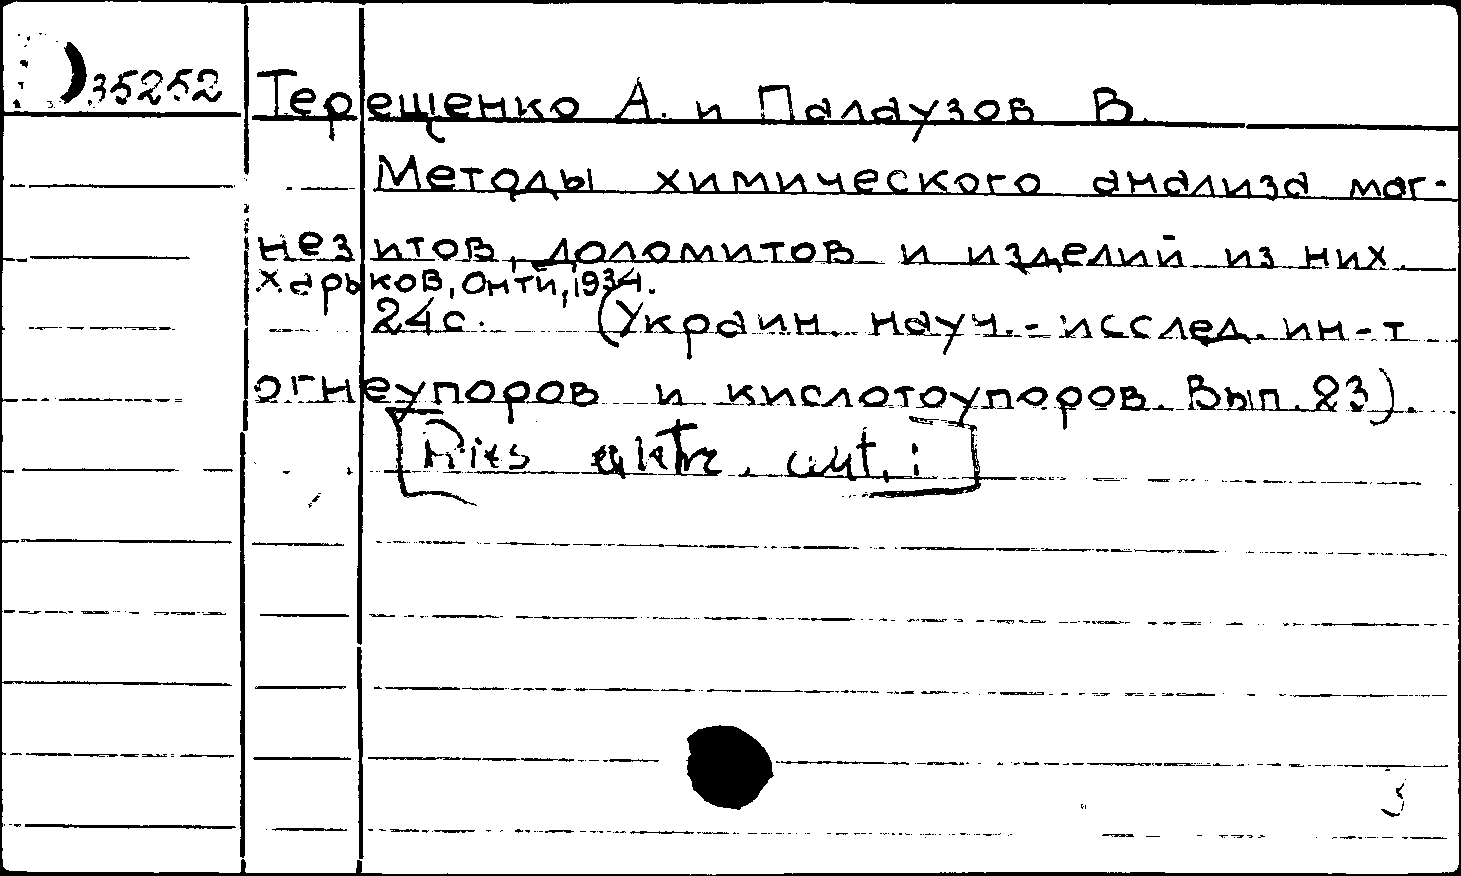 35252
Терещенко А. и Палаузов В.
Методы химического анализа маг-
незитов, доломитов и изделий из них.
Харьков, Онти, 1934.
24с. (Украин. науч.-исслед. ин-т
огнеупоров и кислотоупоров. Вып. 23).
3